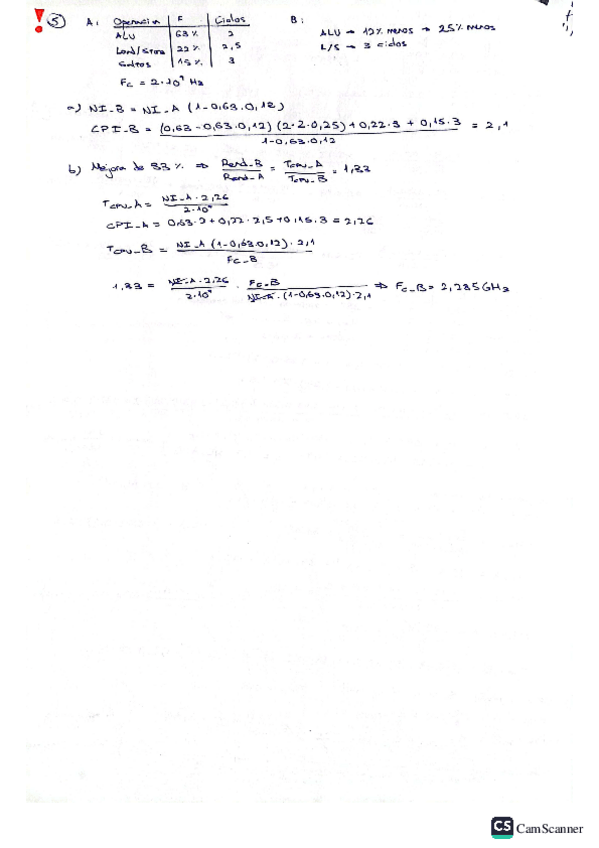 ! 5 A: Operación F Ciclos B:
ALU 63% 2 ALU → 12% menos → 25% menos
Load/Store 22% 2,5 L/S → 3 ciclos
Saltos 15% 3
Fc = 2·10⁹ Hz
a) NI_B = NI_A (1-0,63·0,12)
CPI_B = (0,63-0,63·0,12)(2-2·0,25)+0,22·3+0,15·3 / 1-0,63·0,12 = 2,1
b) Mejora de 33% ⇒ Rend_B / Rend_A = Tcpu_A / Tcpu_B = 1,33
Tcpu_A = NI_A·2,26 / 2·10⁹
CPI_A = 0,63·2+0,22·2,5+0,15·3 = 2,26
Tcpu_B = NI_A (1-0,63·0,12)·2,1 / Fc_B
1,33 = NI_A·2,26 / 2·10⁹ · Fc_B / NI_A·(1-0,63·0,12)·2,1 ⇒ Fc_B = 2,285GHz
CS CamScanner